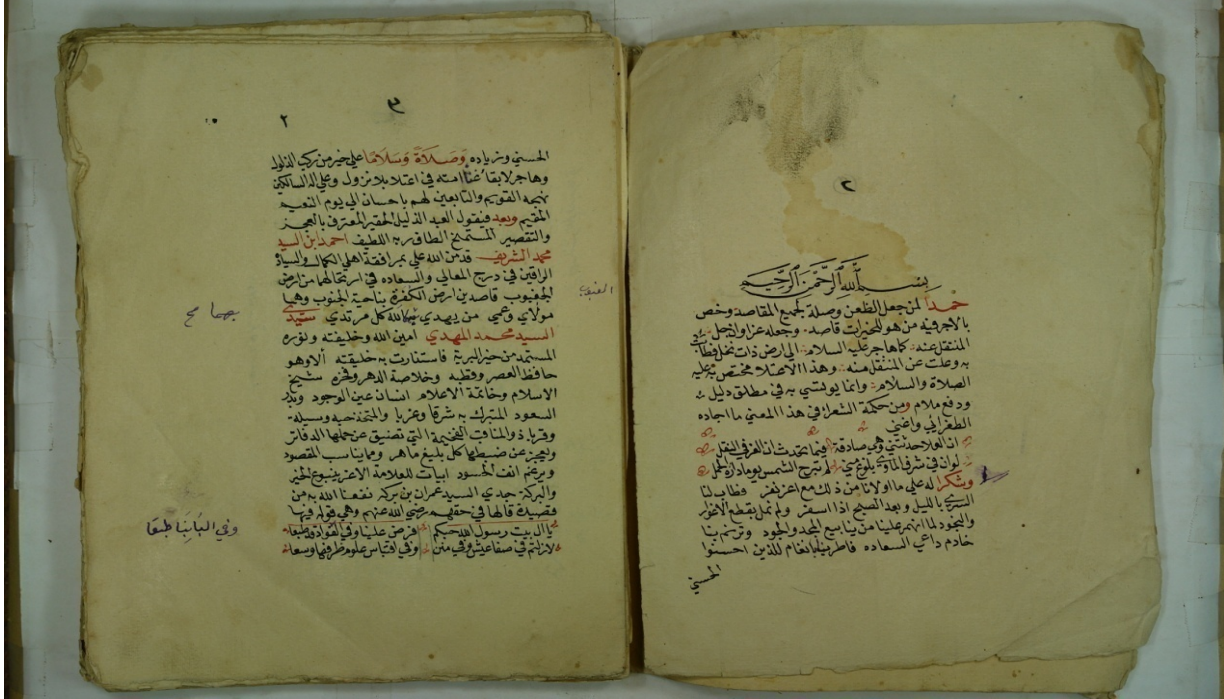 ٢
بسم الله الرحمن الرحيم
حمدا لمن جعل الظعن وصلة لجميع المقاصد وخص
بالاجر فيه من هو للخيرات قاصد وجعله عزا وان جل
المنتقل عنه كما هاجر عليه السلام الى ارض ذات نخل فطابت
به وعلت عن المنتقل منه وهذا الاعتلاء مختص به عليه
الصلاة والسلام وانما يؤتسي به في مطلق دليل
ودفع ملام ومن حكمة الشعراء في هذا المعني ما اجاده
الطغرائي واغني
ان العلا حدثتني وهي صادقة فيما تحدث ان العز في النقل
لو ان في شرف الماوي بلوغ مني لم تبرح الشمس يوما دارة الحمل
وشكرا له علي ما اولانا من ذلك مع اعز نفر فطاب لنا
السري بالليل وبعد الصبح اذا اسفر ولم نمل بقطع الاغوار
والنجود لما انهم علينا من ينابيع المجد والجود وترنم بنا
خادم داعي السعاده فاطربنا بانغام للذين احسنوا
الحسني
٣
٢
الحسني وزياده وصلاة وسلاما علي خير من ركب الذلول
وهاجر لابقاء امته في اعتلا بلا نزول وعلي اله السالكين
نهجه القويم والتابعين لهم باحسان الي يوم النعيم
المقيم وبعد فيقول العبد الذليل الحقير المعترف بالعجز
والتقصير المستمنح الطاف ربه اللطيف احمد ابن السيد
محمد الشريف قد من الله علي بمرافقة اهلي الكمال والسياد
الراقين في درج المعالي والسعاده في ارتحالهما من ارض
الجغبوب قاصدين ارض الكفرة بناحية الجنوب وهما
مولاي وعمي من يهدي بهما الله كل مرتدي سيدي
السيد محمد المهدي امين الله وخليفته ونوره
المستمد من خير البرية فاستنارت به خليقته ألا وهو
حافظ العصر وقطبه وخلاصة الدهر وفخره شيخ
الاسلام وخاتمة الاعلام انسان عين الوجود وبدر
السعود المتبرك به شرقا وغربا والمتخذ حبه وسيلة
وقربا ذو المناقب الفخيمة التي تضيق عن حملها الدفاتر
ويعجز عن ضبطها كل بليغ ماهر ومما يناسب المقصود
ويرغم انف الحسود ابيات للعلامة الاغر ينبوع الخير
والبركة جدي السيد عمران بن بركه نفعنا الله به من
قصيدة قالها في حقهم رضي الله عنهم وهي قوله فيها
يا ال بيت رسول الله حبكم فرض علينا وفي الفؤاد قد طبعا
لازلتم في صفا عيش وفي منن وفي اقتباس علوم ظرفها وسعا
بهما صح
وفي البابنا طبعا